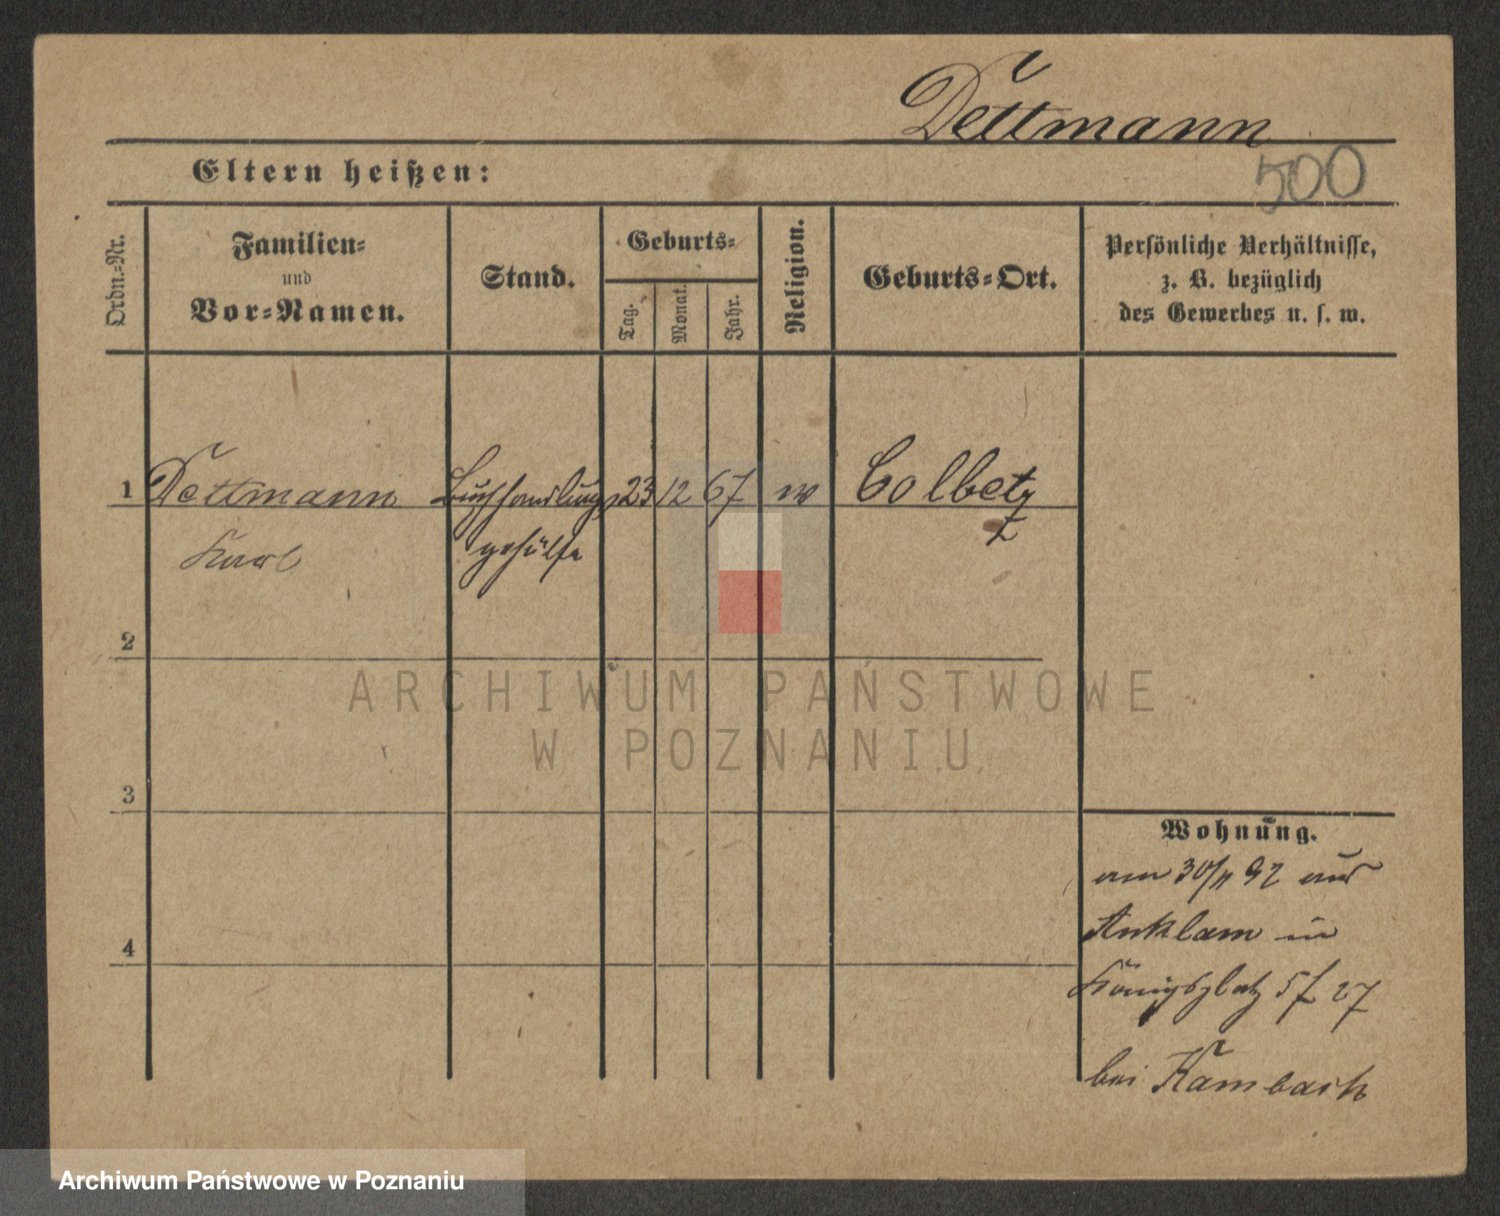 Dettmann
500
Eltern heißen:
Ordn.-Nr.
Familien-
und
Vor-Namen.
Stand.
Geburts-
Tag.
Monat.
Jahr.
Religion.
Geburts-Ort.
Persönliche Verhältnisse,
z. B. bezüglich
des Gewerbes u. s. w.
1 Dettmann Buchhandlungs 23 12 67 Colbetz
Karl gehülfe
2
3
4
Wohnung.
am 30/11 92 aus
Anklam in
Königsplatz 5/ 27
bei Kambach
ARCHIWUM PAŃSTWOWE
W POZNANIU
Archiwum Państwowe w Poznaniu